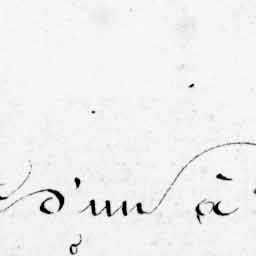 d'un à